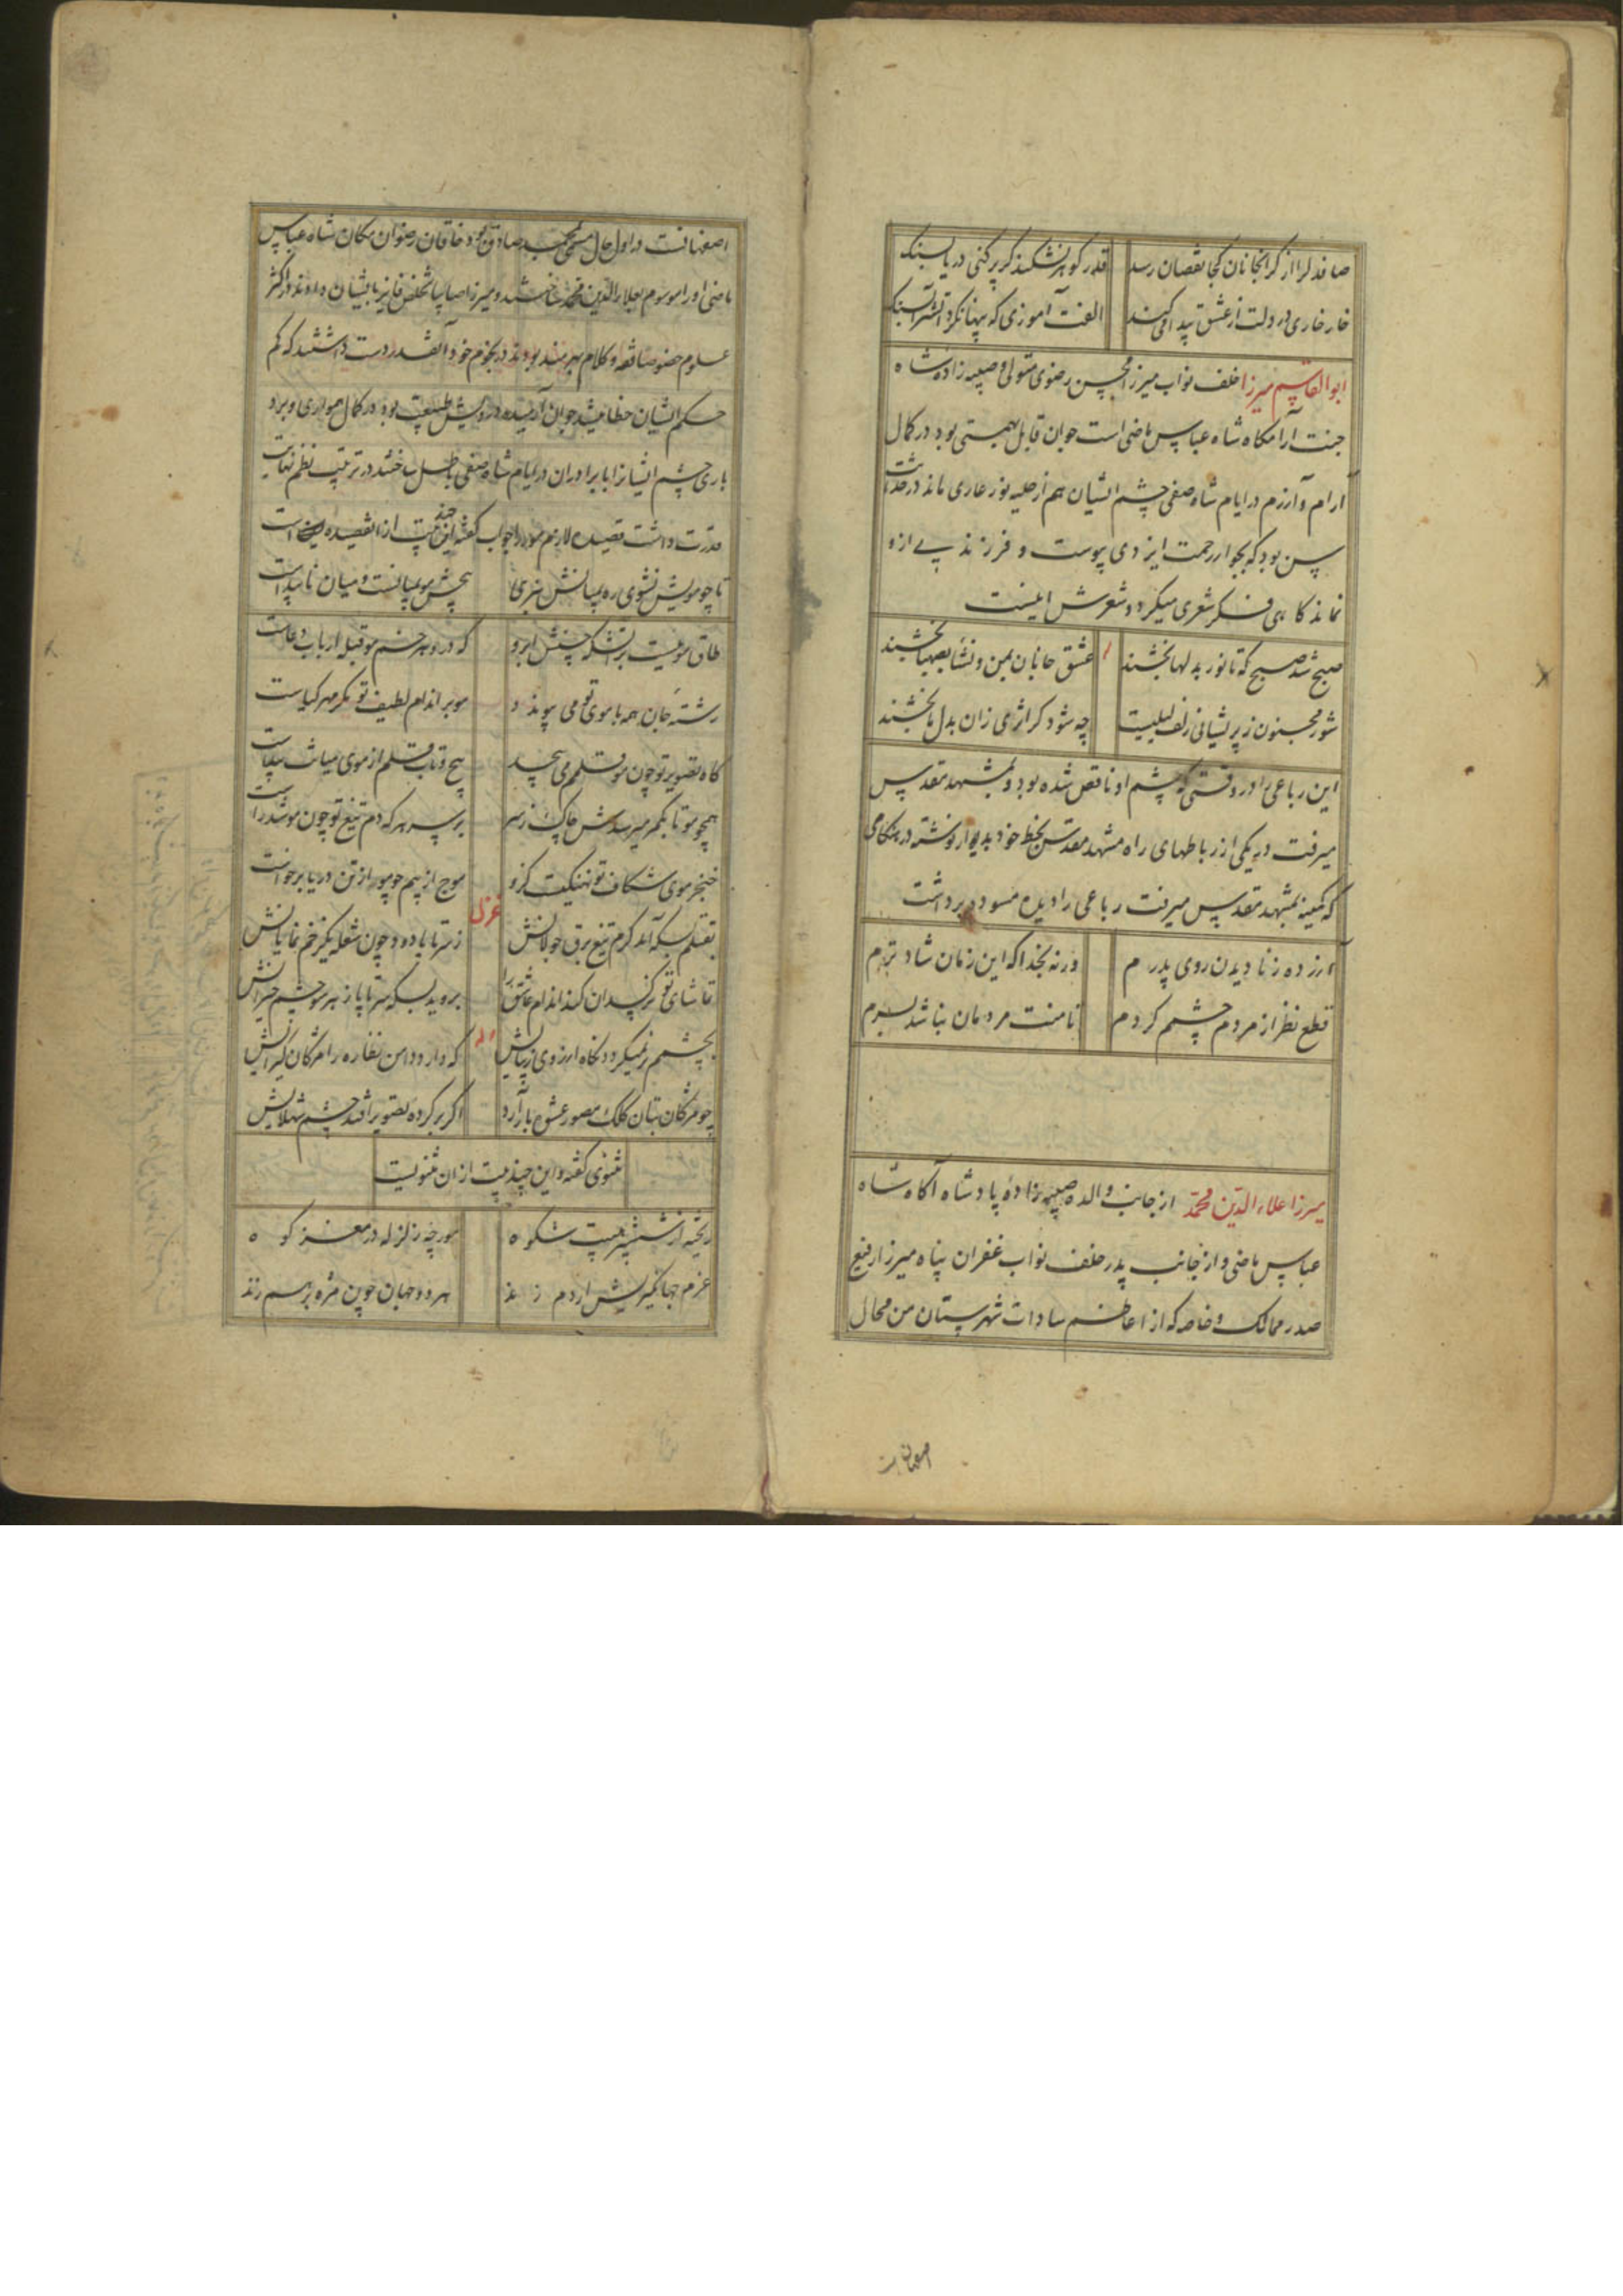 صافدلرا از گرانجانان کجا نقصان رسد قدر گوهر نشکند گر پر کنی دریا بسنگ
خار خاری در دلت از عشق پیدا میکند الفت آموزی که پنهان کرد آتش را بسنگ
ابوالقاسم میرزا خلف نواب میرزا محسن رضوی متولی و صبیه زاده شاه
جنت آرامگاه شاه عباس ماضی است جوان قابل بهمتی بود در کمال
آرام و آزرم در ایام شاه صفی چشم ایشان هم از حلیه نور عاری ماند در حداثت
سن بود که بجوار رحمت ایزدی پیوست و فرزندی از و
نماند کاهی فکر شعری میکرد و شعرش اینست
صبح شد صبح که تا نور بدلها بخشند عشق جانان بمن و نشأ بصهبا بخشند
شور مجنون ز پریشانی زلف لیلیست چه شود گر اثری زان بدل ما بخشند
این رباعی را در وقتی که چشم او ناقص شده بود و بمشهد مقدس
میرفت در یکی از رباطهای راه مشهد مقدس بخط خود بدیوار نوشته در هنگامی
که کمینه بمشهد مقدس میرفت رباعی را دیده مسوده برداشت
آزرده ز نادیدن روی پدرم ورنه بخدا که این زمان شادترم
قطع نظر از مردم چشم کردم تا منت مردمان نباشد بسرم
میرزا علاء الدین محمد از جانب والده صبیه زادهٔ پادشاه آگاه شاه
عباس ماضی و از جانب پدر خلف نواب غفران پناه میرزا رفیع
صدر ممالک و خاصه که از اعاظم سادات شهرستان من محال
اصفهانست
اصفهانست در اول حال مسمی بمحمد صادق بود خاقان رضوان مکان شاه عباس
ماضی او را موسوم بعلاء الدین محمد ساختند و میرزا صایبا تخلص فایز بایشان دادند در اکثر
علوم خصوصا فقه و کلام بهره مند بودند در نجوم خود آنقدر دست داشتند که کم
حکم ایشان خطا میشد جوان آرمیده درویش طبیعت بود در کمال همواری و برد
باری چشم ایشانرا با برادران در ایام شاه صفی باطل ساختند در ترتیب نظم نهایت
قدرت داشت قصیده لازم مو را جواب گفته این چند بیت از انقصیده است
تا چو مویش نشوی ره بمیانش نبری هیچش مو بمیانست و میان ناپیداست
طاق موئیست بر آتشکده حسنش ابرو که در و هر خم مو قبله ارباب دعاست
رشتهٔ جان همه با موی تو می پیوندد مو بر اندام لطیف تو مگر مهر گیاست
گاه تصویر تو چون مو قلمم می پیچد پیچ و تاب قلم از موی میانت پیداست
همچو مو تا بکمر میرسدش چاک ز سر بر سر هر که دم تیغ تو چون مو شد راست
خنجر موی شکاف تو نهنگیست کزو موج از بیم چو مو بر از تن دریا برخواست
غزل
بقتلم بسکه آمد گرم تیغ برق جولانش ز سر تا پا دود چون شعله یکزخم نمایانش
تماشای تو نرگسدان کند اندام عاشق را بروید بسکه سر تا پا ز هر مو چشم حیرانش
وله
بچشمم بر نمیگردد نگاه از روی زیبایش که دارد دامن نظاره را مژگان گیرایش
چو مژگان بتان کلک مصور عشوه بار آرد اگر بر گرده تصویر افتد چشم شهلایش
مثنوی گفته و این چند بیت از ان مثنویست
ریخته از شش پر هیبت شکوه مورچه زلزله در مغز کوه
عزم جهانگیریش ار دم زند هر دو جهان چون مژه بر هم زند